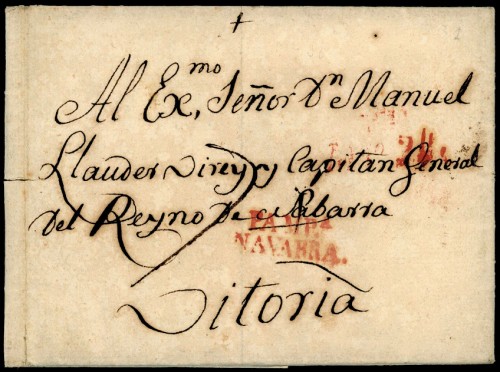 Al Ex.mo Señor Dn Manuel
Llauder Virey y Capitan General
del Reyno de Nabarra
NAVARRA.
Vitoria